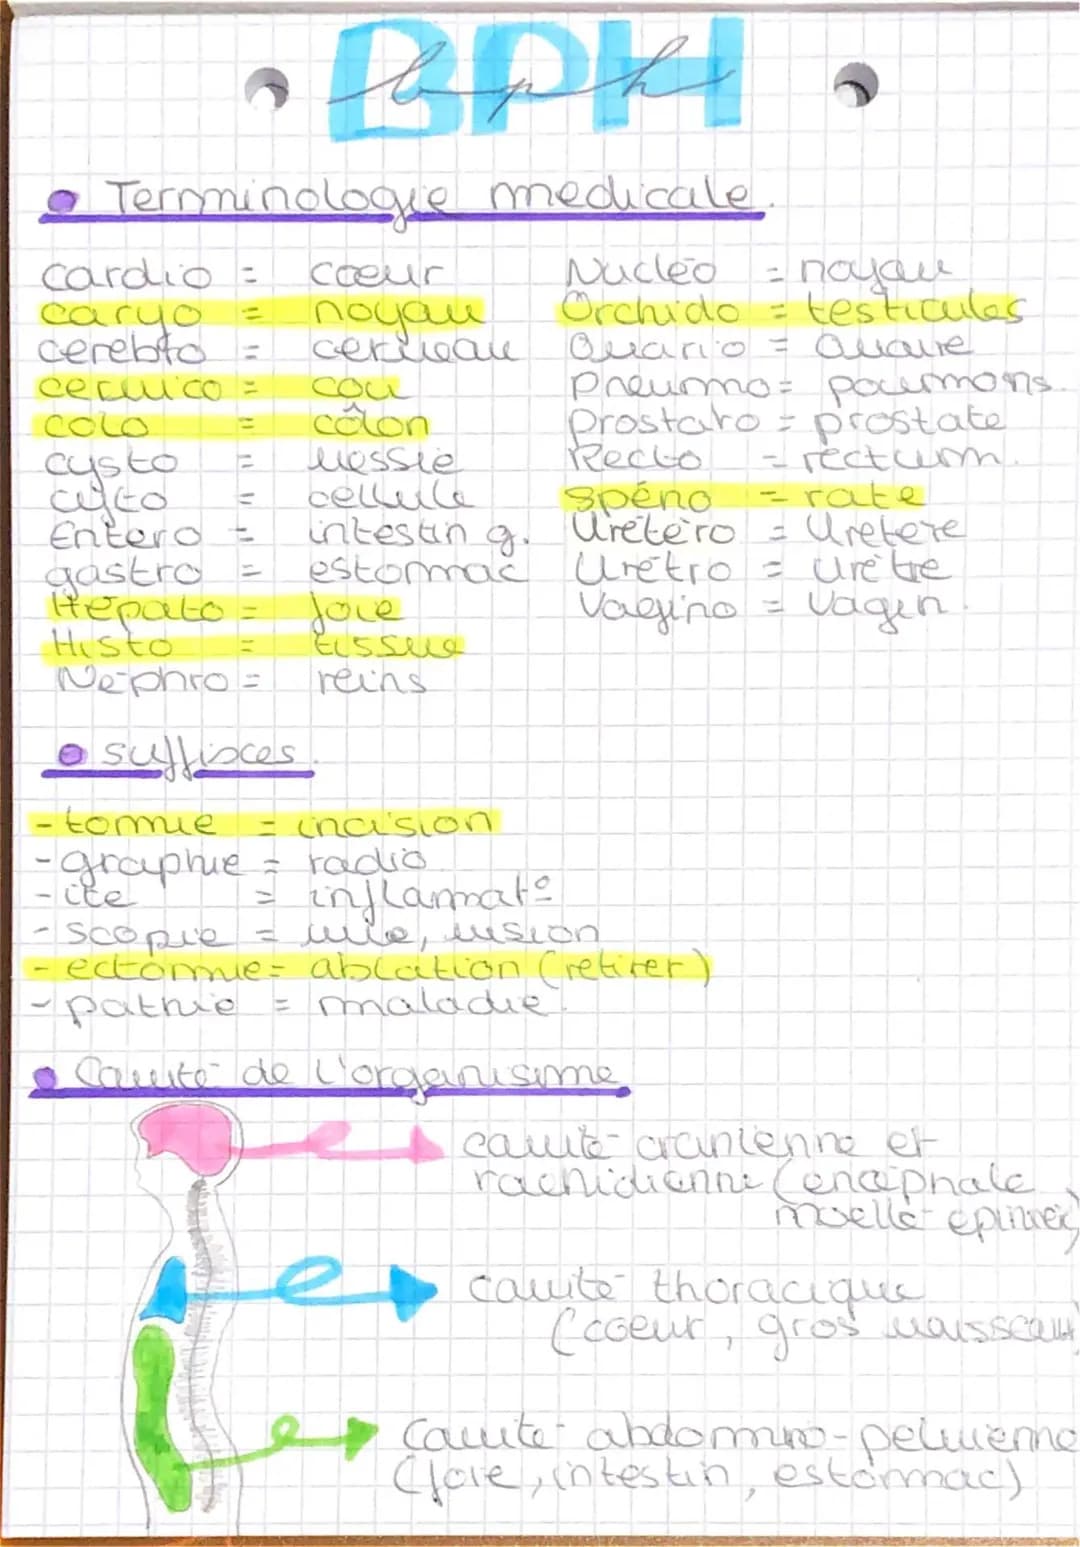 BPH
bph
Terminologie medicale.
cardio = cœur
caryo = noyau
cerebro = cerveau
cervico = cou
colo = côlon
cysto = vessie
cyto = cellule
Entero = intestin g.
gastro = estomac
Hépato = foie
Histo = tissue
Néphro = reins
Nucléo = noyau
Orchido = testicules
Ovario = ovaire
Pneumo = poumons.
Prostato = prostate
Recto = rectum.
Spéno = rate
Urétéro = Uretere
Urétro = urètre
Vagino = Vagin.
suffixes.
-tomie = incision
-graphie = radio
-ite = inflammat°
-scopie = vue, vision
-ectomie = ablation (retirer)
-pathie = maladie.
Cavité de l'organisme
cavité cranienne et
rachidienne (encéphale
moelle épinière)
cavité thoracique
(coeur, gros vaisseaux)
Cavité abdomino-pelvienne
(foie, intestin, estomac)